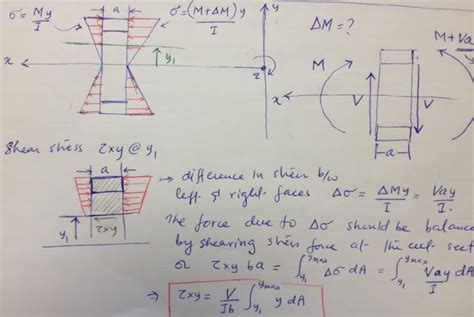 σ = My/I
a
σ = (M+ΔM)y/I
y
ΔM = ?
M + Va
y₁
x
z
M
x
V
V
a
Shear stress τxy @ y₁
a
→ difference in stress b/w
left & right faces Δσ = ΔMy/I = Vay/I.
y₁
τxy
The force due to Δσ should be balance
by shearing stress force at the cut sect
or τxy ba = ∫_{y₁}^{ymax} Δσ dA = ∫_{y₁}^{ymax} Vay dA/I
⇒ τxy = V/Ib ∫_{y₁}^{ymax} y dA